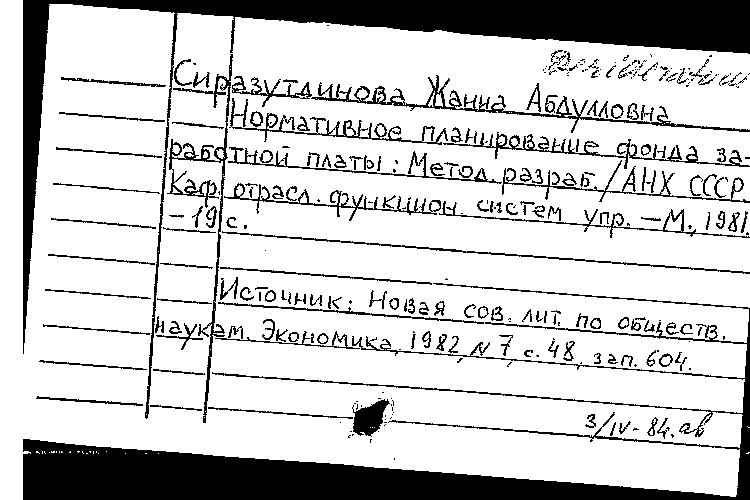 Desideratum
Сиразутдинова, Жанна Абдулловна
Нормативное планирование фонда за-
работной платы: Метод. разраб./АНХ СССР.
Каф. отрасл. функцион. систем упр. —М., 1981.
—19 с.
Источник: Новая сов. лит. по обществ.
наукам. Экономика, 1982, N 7, с. 48, зап. 604.
3/IV-84. ав